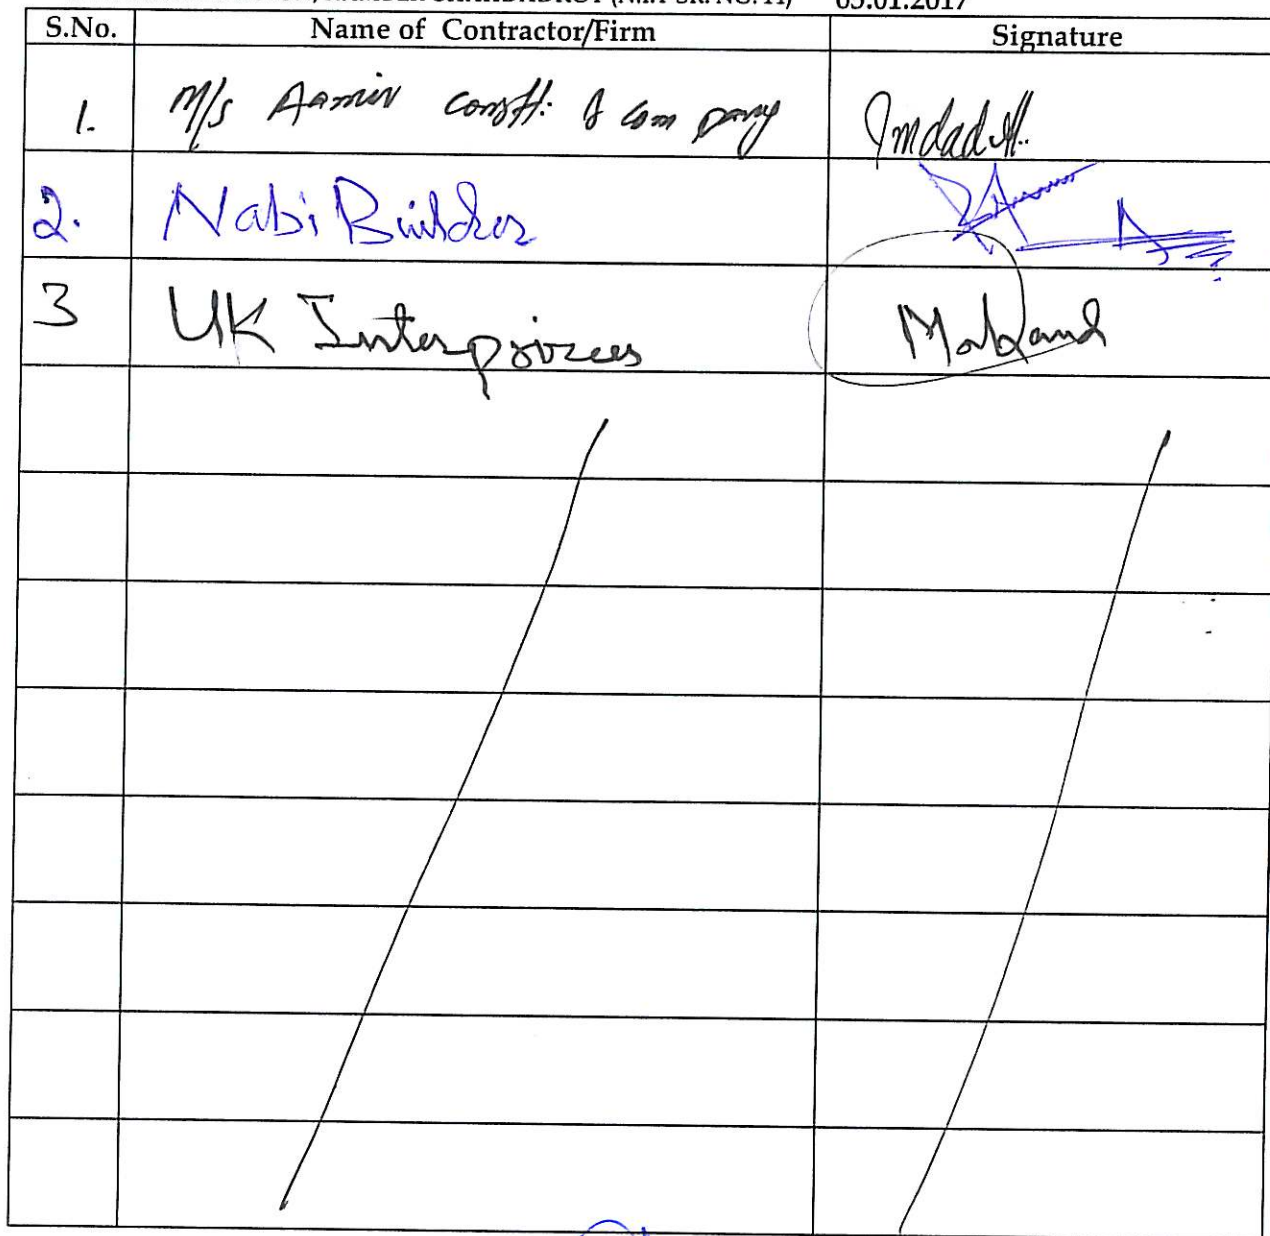 05.01.2017
S.No. Name of Contractor/Firm Signature
1. M/s Aamir Constt: & Com pany Imdad A.
2. Nabi Builders
3 UK Interprizees